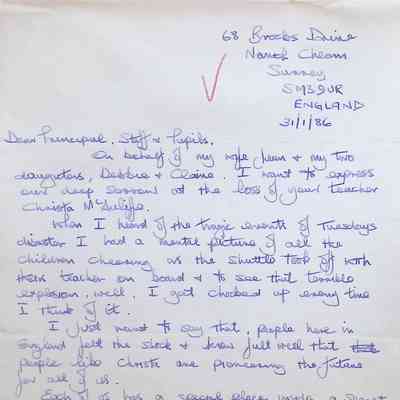 68 Brocks Drive
North Cheam
Surrey
SM3 9UR
ENGLAND
31/1/86
Dear Principal, Staff & Pupils,
On behalf of my wife Jean & my two
daughters, Debbie & Claire. I want to express
our deep sorrow at the loss of your teacher
Christa McAuliffe.
When I heard of the tragic events of Tuesdays
disaster I had a mental picture of all the
children cheering as the shuttle took off with
their teacher on board & to see that terrible
explosion, well, I get choked up every time
I think of it.
I just want to say that, people here in
England felt the shock & knew full well that
people like Christa are pioneering the future
for all of us.
Each of us has a special place inside a